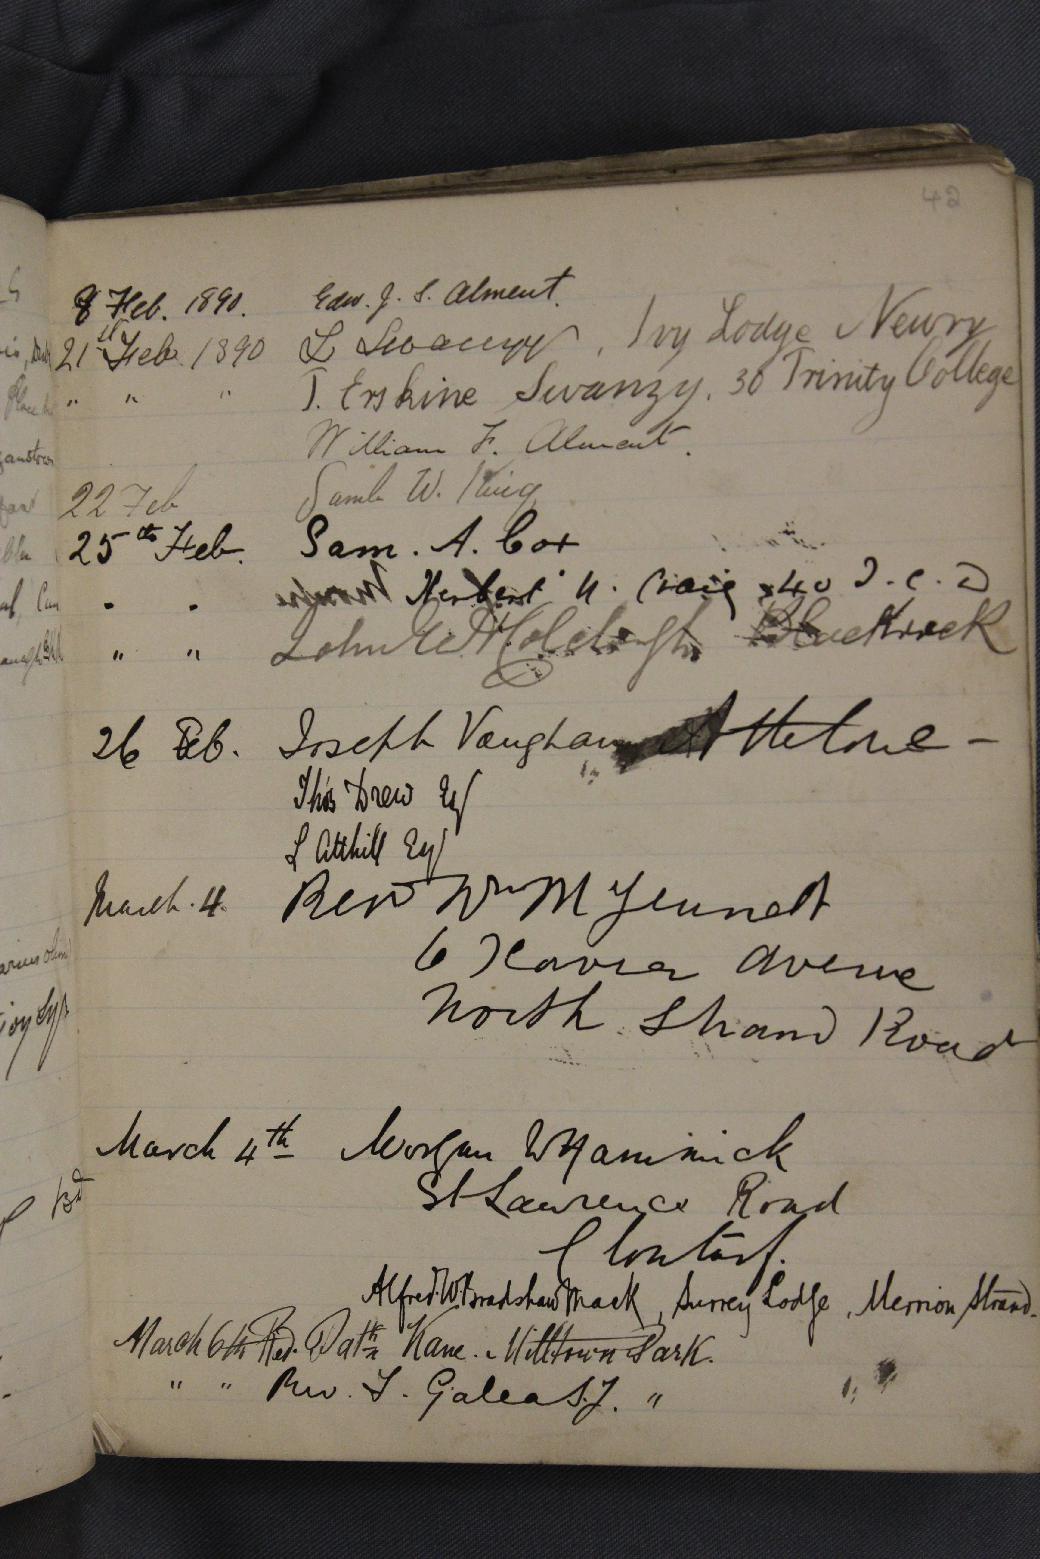 42
8 Feb. 1890. Edw. J. S. Alment.
21st Feb. 1890 L Swanzy, Ivy Lodge Newry
" " " T. Erskine Swanzy. 30 Trinity College
William F. Alment.
22 Feb Saml W. King
25th Feb. Sam. A. Cox
" " Herbert N. Craig 40 T.C.D
" " John Blackrock
26 Feb. Joseph Vaughan Athlone -
Thos Drew Esq
L Atthill Esq
March. 4. Revd Wm
6 Xavier Avenue
North Strand Road
March 4th Morgan W Hammick
St Lawrence Road
Clontarf.
Alfred W. Bradshaw Mack, Surrey Lodge, Merrion Strand.
March 6th Rev. Patk Kane. Milltown Park.
" " Rev. F. Galea S.J. "